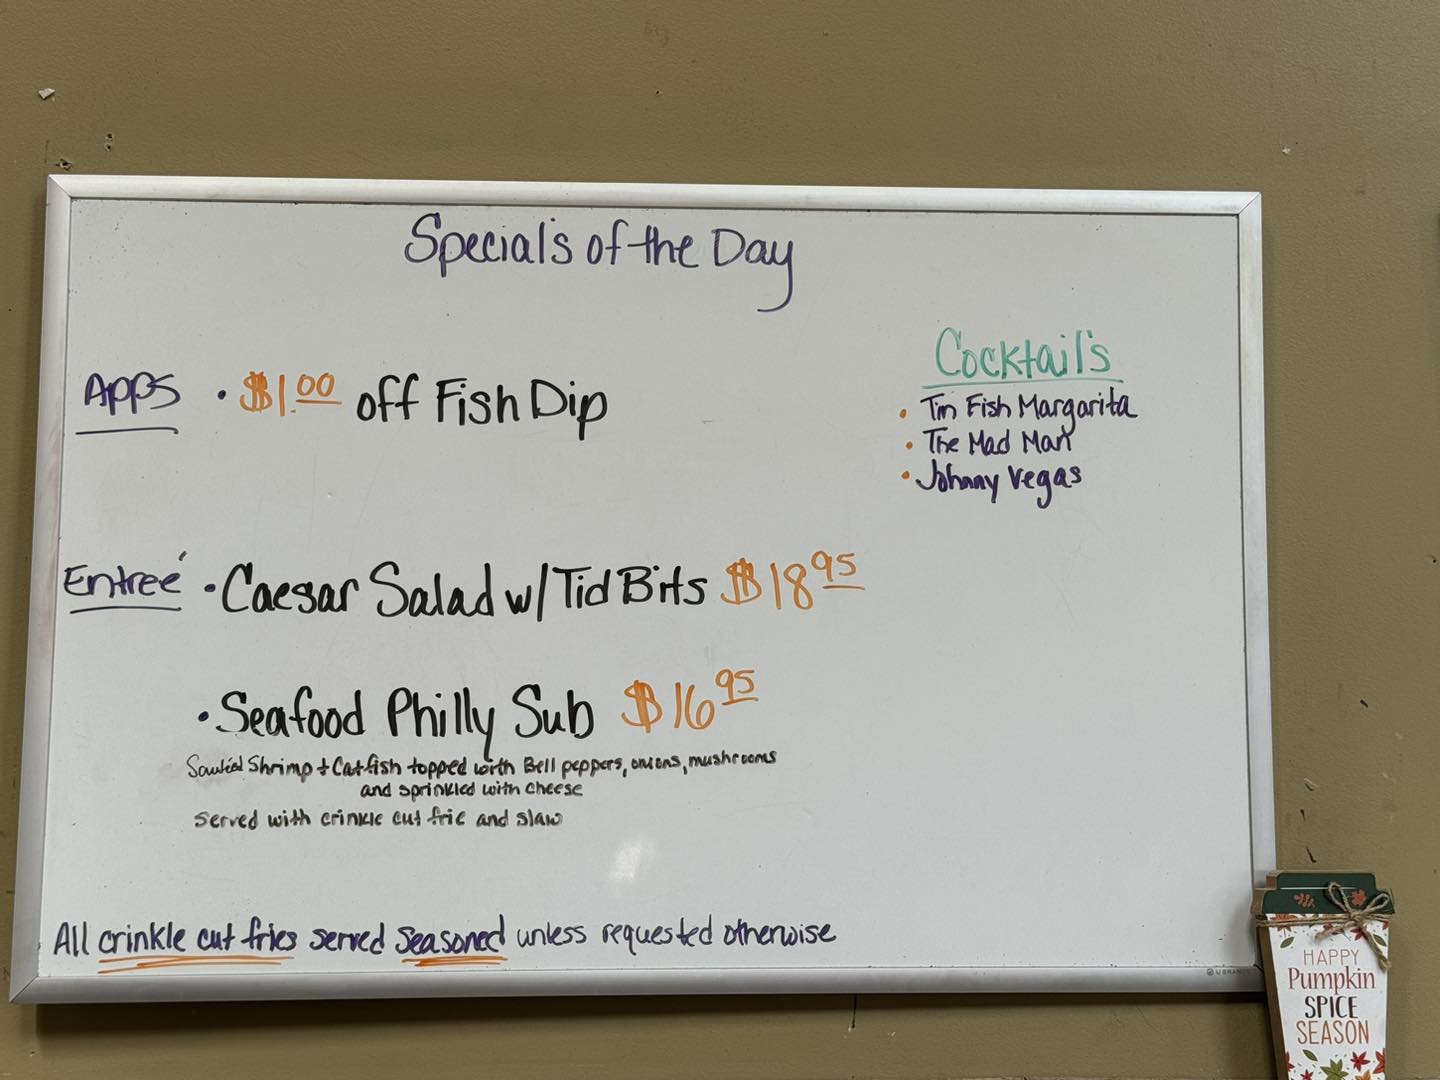 Special's of the Day
Apps • $1.00 off Fish Dip
Cocktail's
• Tin Fish Margarita
• The Mad Man
• Johnny Vegas
Entreé • Caesar Salad w/ Tid Bits $18 95
• Seafood Philly Sub $16 95
Shrimp + Catfish topped with Bell peppers, onions, mushrooms
and sprinkled with cheese
served with crinkle cut frie and slaw
All crinkle cut fries served seasoned unless requested otherwise
U BRANDS
HAPPY
Pumpkin
SPICE
SEASON